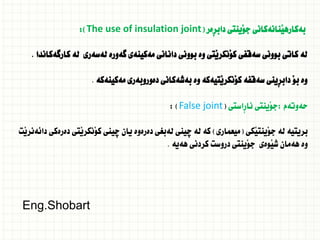 بەکارهێنانەکانی جۆینتی دابڕەر (The use of insulation joint) :
لە کاتی بوونی سەقفی کۆنکرێتی وە بوونی دانانی مەکینەی گەورە لەسەری لە کارگەکاندا .
وە بۆ دابڕینی سەقفە کۆنکرێتیەکە وە بەشەکانی دەوروبەری مەکینەکە .
حەوتەم :جۆینتی ناڕاستی ( False joint ) :
بریتیە لە جۆینتێکی ( میعماری ) کە لە چینی لەبغی دەرەوە یان چینی کۆنکرێتی دەرەکی دائەنرێت
وە هەمان شێوەی جۆینتی دروست کردنی هەیە .
Eng.Shobart